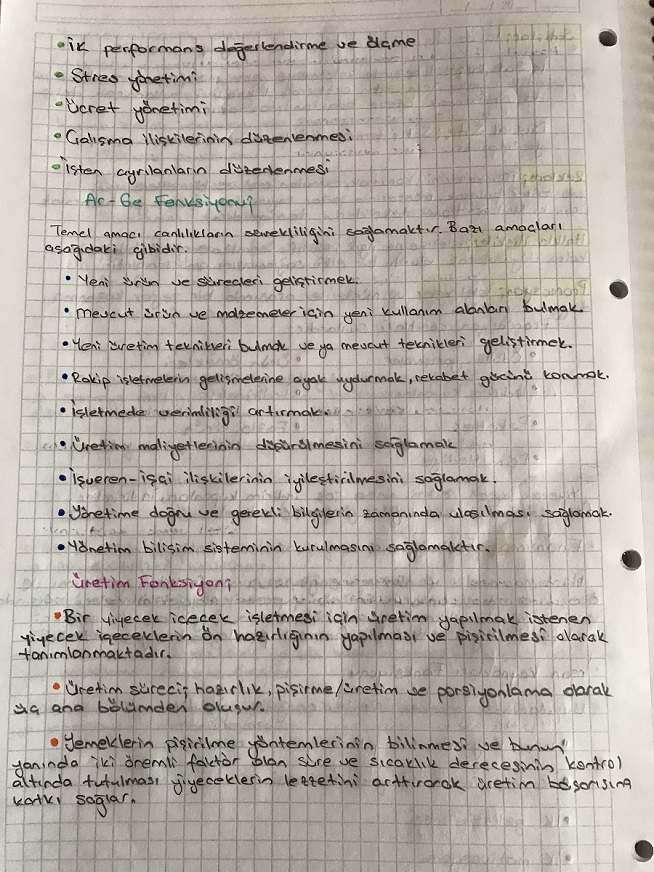 • İK performans değerlendirme ve ölçme
• Stres yönetimi
• Ücret yönetimi
• Çalışma ilişkilerinin düzenlenmesi
• İşten ayrılanların düzenlenmesi
Ar-Ge Fonksiyonu
Temel amacı canlılıkların sürekliliğini sağlamaktır. Bazı amaçları
aşağıdaki gibidir.
• Yeni ürün ve süreçleri geliştirmek.
• mevcut ürün ve malzemeler için yeni kullanım alanları bulmak.
• Yeni üretim teknikleri bulmak ve ya mevcut teknikleri geliştirmek.
• Rakip işletmelerin gelişmelerine ayak uydurmak, rekabet gücünü korumak.
• İşletmede verimliliği artırmak.
• Üretim maliyetlerinin düşürülmesini sağlamak
• İşveren-işçi ilişkilerinin iyileştirilmesini sağlamak.
• Yönetime doğru ve gerekli bilgilerin zamanında ulaşılması sağlamak.
• Yönetim bilişim sisteminin kurulmasını sağlamaktır.
Üretim Fonksiyonu
• Bir yiyecek içecek işletmesi için üretim yapılmak istenen
yiyecek içeceklerin ön hazırlığının yapılması ve pişirilmesi olarak
tanımlanmaktadır.
• Üretim süreci; hazırlık, pişirme/üretim ve porsiyonlama olarak
üç ana bölümden oluşur.
• Yemeklerin pişirilme yöntemlerinin bilinmesi ve bunun
yanında iki önemli faktör olan süre ve sıcaklık derecesinin kontrol
altında tutulması yiyeceklerin lezzetini arttırarak üretim başarısına
katkı sağlar.